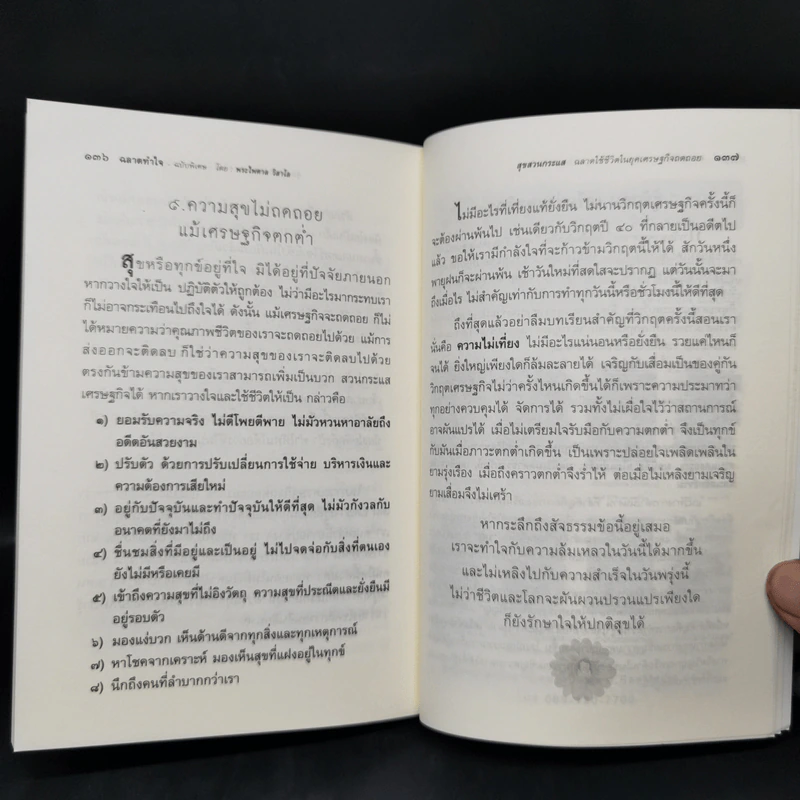 ๑๓๖ ฉลาดทำใจ - ฉบับพิเศษ โดย : พระไพศาล วิสาโล
๙.ความสุขไม่ถดถอย
แม้เศรษฐกิจตกต่ำ
สุขหรือทุกข์อยู่ที่ใจ มิได้อยู่ที่ปัจจัยภายนอก
หากวางใจให้เป็น ปฏิบัติตัวให้ถูกต้อง ไม่ว่ามีอะไรมากระทบเรา
ก็ไม่อาจกระเทือนไปถึงใจได้ ดังนั้น แม้เศรษฐกิจจะถดถอย ก็ไม่
ได้หมายความว่าคุณภาพชีวิตของเราจะถดถอยไปด้วย แม้การ
ส่งออกจะติดลบ ก็ใช่ว่าความสุขของเราจะติดลบไปด้วย
ตรงกันข้ามความสุขของเราสามารถเพิ่มเป็นบวก สวนกระแส
เศรษฐกิจได้ หากเราวางใจและใช้ชีวิตให้เป็น กล่าวคือ
๑) ยอมรับความจริง ไม่ตีโพยตีพาย ไม่มัวหวนหาอาลัยถึง
อดีตอันสวยงาม
๒) ปรับตัว ด้วยการปรับเปลี่ยนการใช้จ่าย บริหารเงินและ
ความต้องการเสียใหม่
๓) อยู่กับปัจจุบันและทำปัจจุบันให้ดีที่สุด ไม่มัวกังวลกับ
อนาคตที่ยังมาไม่ถึง
๔) ชื่นชมสิ่งที่มีอยู่และเป็นอยู่ ไม่ไปจดจ่อกับสิ่งที่ตนเอง
ยังไม่มีหรือเคยมี
๕) เข้าถึงความสุขที่ไม่อิงวัตถุ ความสุขที่ประณีตและยั่งยืนมี
อยู่รอบตัว
๖) มองแง่บวก เห็นด้านดีจากทุกสิ่งและทุกเหตุการณ์
๗) หาโชคจากเคราะห์ มองเห็นสุขที่แฝงอยู่ในทุกข์
๘) นึกถึงคนที่ลำบากกว่าเรา
สุขสวนกระแส ฉลาดใช้ชีวิตในยุคเศรษฐกิจถดถอย ๑๓๗
ไม่มีอะไรที่เที่ยงแท้ยั่งยืน ไม่นานวิกฤตเศรษฐกิจครั้งนี้ก็
จะต้องผ่านพ้นไป เช่นเดียวกับวิกฤตปี ๔๐ ที่กลายเป็นอดีตไป
แล้ว ขอให้เรามีกำลังใจที่จะก้าวข้ามวิกฤตนี้ให้ได้ สักวันหนึ่ง
พายุฝนก็จะผ่านพ้น เช้าวันใหม่ที่สดใสจะปรากฏ แต่วันนั้นจะมา
ถึงเมื่อไร ไม่สำคัญเท่ากับการทำทุกวันนี้หรือชั่วโมงนี้ให้ดีที่สุด
ถึงที่สุดแล้วอย่าลืมบทเรียนสำคัญที่วิกฤตครั้งนี้สอนเรา
นั่นคือ ความไม่เที่ยง ไม่มีอะไรแน่นอนหรือยั่งยืน รวยแค่ไหนก็
จนได้ ยิ่งใหญ่เพียงใดก็ล้มละลายได้ เจริญกับเสื่อมเป็นของคู่กัน
วิกฤตเศรษฐกิจไม่ว่าครั้งไหนเกิดขึ้นได้ก็เพราะความประมาทว่า
ทุกอย่างควบคุมได้ จัดการได้ รวมทั้งไม่เผื่อใจไว้ว่าสถานการณ์
อาจผันแปรได้ เมื่อไม่เตรียมใจรับมือกับความตกต่ำ จึงเป็นทุกข์
กับมันเมื่อภาวะตกต่ำเกิดขึ้น เป็นเพราะปล่อยใจเพลิดเพลินใน
ยามรุ่งเรือง เมื่อถึงคราวตกต่ำจึงร่ำไห้ ต่อเมื่อไม่เหลิงยามเจริญ
ยามเสื่อมจึงไม่เศร้า
หากระลึกถึงสัจธรรมข้อนี้อยู่เสมอ
เราจะทำใจกับความล้มเหลวในวันนี้ได้มากขึ้น
และไม่เหลิงไปกับความสำเร็จในวันพรุ่งนี้
ไม่ว่าชีวิตและโลกจะผันผวนปรวนแปรเพียงใด
ก็ยังรักษาใจให้ปกติสุขได้